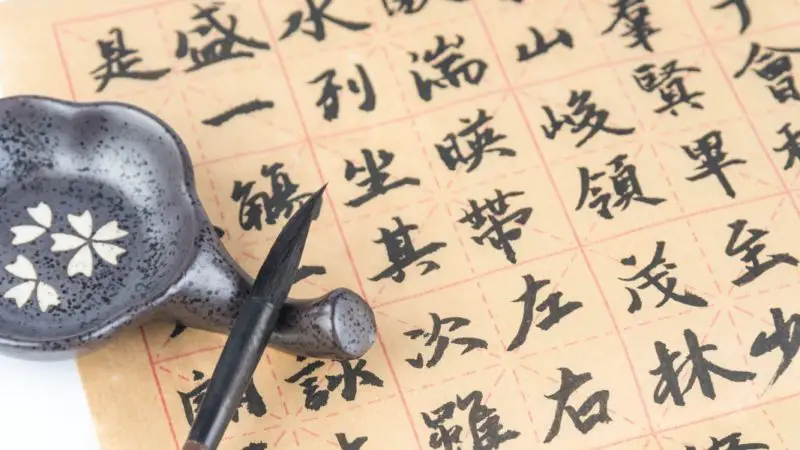 會
羣賢畢至少
山峻領茂林
湍映帶左右
水列坐其次雖
盛一觴一詠
是